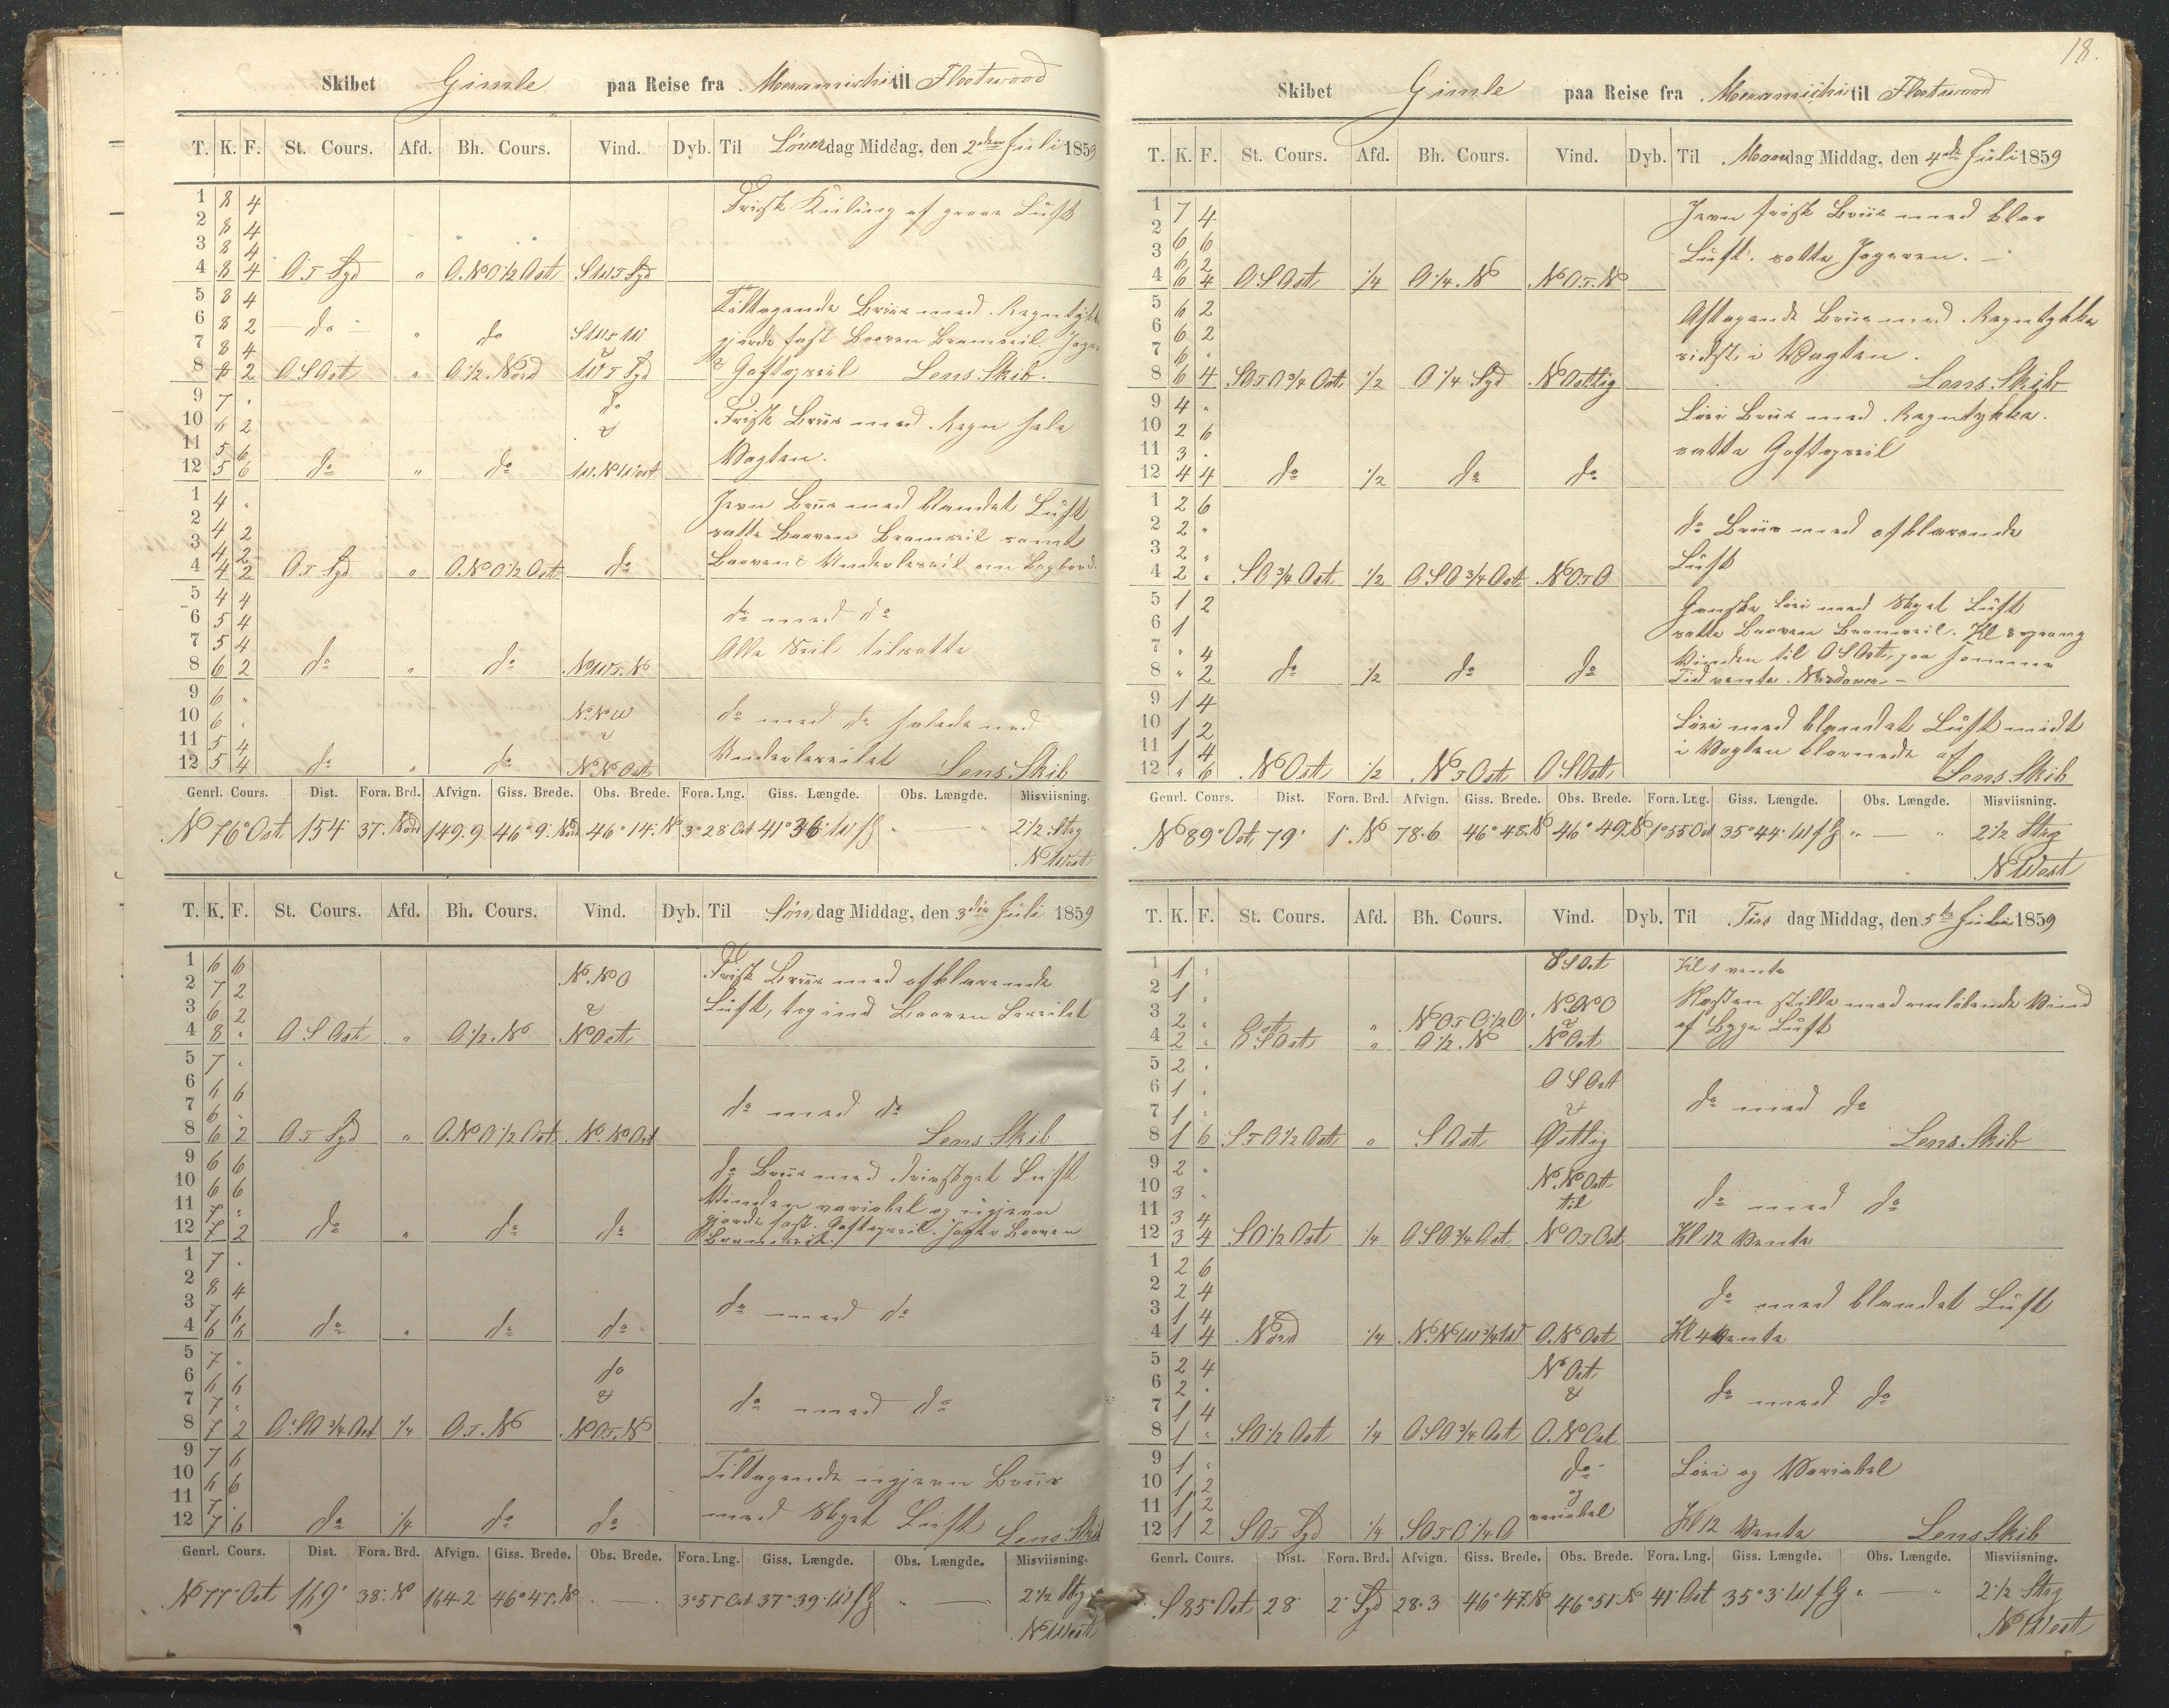 Skibet Gimle paa Reise fra Meramichi til Fleetwood
T. K. F. St. Cours. Afd. Bh. Cours. Vind. Dyb. Til Løverdag Middag, den 2den Juli 1859
1 8 4 Frisk Kuling af graae Luft
2 8 4
3 8 4
4 8 4 O.T Syd " O.NO 1/2 Ost SW.T Syd
5 8 4 Tiltagende Briis med Regntykke
6 8 2 do " do SW.T W
7 8 4 gjorde fast Booven Bramseil. Jager
8 8 2 OSOst " O 1/2 Nord W.T Syd & Gaftopseil Lens Skib.
9 7 " do
10 6 2 & Frisk Briis med Regn hele
11 5 6 Vagten.
12 5 6 do " do W.NWest
1 4 " Jevn Briis med blandet Luft
2 4 2 satte Booven Bramseil samt
3 4 2
4 4 2 O.T Syd " O.NO 1/2 Ost do Booven & Underleseil om Bagbord.
5 4 4 do med do
6 5 4
7 5 4 Alle Seil tilsatte
8 6 2 do " do NW.T.N
9 6 " N.NW
10 6 " & do med do halede ned
11 5 4 Underleseilet
12 5 4 do " do N.NOst Lens Skib
Genrl. Cours. Dist. Fora. Brd. Afvign. Giss. Brede. Obs. Brede. Fora. Lng. Giss. Længde. Obs. Længde. Misviisning.
N 76° Ost 154 37. Nord 149.9 46° 9' Nord 46° 14' N 3° 28 Ost 41° 36' W f G " — " 2 1/2 Strg
N West
T. K. F. St. Cours. Afd. Bh. Cours. Vind. Dyb. Til Søndag Middag, den 3die Juli 1859
1 6 6 N.NO Frisk Briis med afklarende
2 7 2
3 6 2 & Luft, tog ind Booven Leseilet
4 8 " OSOst " O 1/2 N NOst
5 7 "
6 6 6
7 6 " do med do
8 6 2 O.T Syd " O.NO 1/2 Ost N.NOst Lens Skib
9 6 6 do Briis med drivskyet Luft
10 6 6 Vinden variabel og ujevn
11 7 " gjorde fast Gaftopseil. Jager Booven
12 7 2 do " do do Bramseil.
1 7 "
2 8 4
3 7 6 do med do
4 6 6 do " do do
5 7 " do
6 6 6 &
7 7 " do med do
8 7 2 O.SO 3/4 Ost 1/4 O.T.N NO.T.N
9 7 6 Tiltagende ujevn Briis
10 6 6
11 7 " med Skyet Luft
12 7 6 do 1/4 do do Lens Skib
Genrl. Cours. Dist. Fora. Brd. Afvign. Giss. Brede. Obs. Brede. Fora. Lng. Giss. Længde. Obs. Længde. Misviisning.
N 77° Ost 169' 38' N 164.2 46° 47' N " — " 3° 57 Ost 37° 39' W f G " — 2 1/2 Strg
N West
18.
Skibet Gimle paa Reise fra Meramichi til Fleetwood
T. K. F. St. Cours. Afd. Bh. Cours. Vind. Dyb. Til Mandag Middag, den 4de Juli 1859
1 7 4 Jevn frisk Briis med klar
2 6 6
3 6 2 Luft. satte Jageren.
4 6 4 OSOst 1/4 O 1/4 N NO.T.N
5 6 2 Aftagende Briis med Regntykke
6 6 2
7 6 " sidst i Vagten.
8 6 4 SO.T O 3/4 Ost 1/2 O 1/4 Syd NOstlig Lens Skib
9 4 " Løi Briis med Regntykke.
10 2 6
11 3 " satte Gaftopseil
12 4 4 do 1/2 do do
1 2 6
2 2 " do Briis med afklarende
3 2 "
4 2 " SO 3/4 Ost 1/2 OSO 3/4 Ost NO.T O Luft
5 1 2 Ganske Løi med Skyet Luft
6 1 satte Booven Bramseil. Kl 8 sprang
7 " 4 Vinden til OSOst, paa samme
8 " 2 do 1/2 do do Tid vente Nordover
9 1 4
10 1 2 Løi med blandet Luft midt
11 1 4 i Vagten klarnede af
12 " 6 NOst 1/2 N.T Ost OSOst Lens Skib
Genrl. Cours. Dist. Fora. Brd. Afvign. Giss. Brede. Obs. Brede. Fora. Lng. Giss. Længde. Obs. Længde. Misviisning.
N 89° Ost 79' 1' N 78.6 46° 48' N 46° 49' N 1° 55 Ost 35° 44' W f G " — " 2 1/2 Strg
N West
T. K. F. St. Cours. Afd. Bh. Cours. Vind. Dyb. Til Tirsdag Middag, den 5te Juli 1859
1 1 " OSOst Kl 1 vente
2 1 " N.NO Næsten stille med omløbende Vind
3 2 " Ost " NO.T O 1/2 O &
4 2 " OSOst " O 1/2 N NOst af Byge Luft
5 2 " OSOst
6 1 " &
7 1 " do med do
8 1 6 S.T O 1/2 Ost " SOst Østlig Lens Skib
9 2 " N.NOst
10 3 " til do med do
11 3 4
12 3 4 SO 1/2 Ost 1/4 OSO 3/4 Ost NO.T Ost Kl 12 Vente
1 2 6
2 2 4 do med blandet Luft
3 1 4
4 1 4 Nord 1/4 N.NW 3/4 W O.NOst Kl 4 Vente
5 2 4 NOst
6 2 " & do med do
7 1 4
8 1 " SO 1/2 Ost 1/4 OSO 3/4 Ost O.NOst
9 1 " do Løi og Variabel
10 1 2 og
11 1 2 variabel
12 1 2 SO.T Syd 1/4 SO.T O 1/4 O Kl 12 Vente Lens Skib
Genrl. Cours. Dist. Fora. Brd. Afvign. Giss. Brede. Obs. Brede. Fora. Lng. Giss. Længde. Obs. Længde. Misviisning.
S 85° Ost 28 2' Syd 28.3 46° 47' N 46° 51' N 41' Ost 35° 3' W f G " — " 2 1/2 Strg
N West